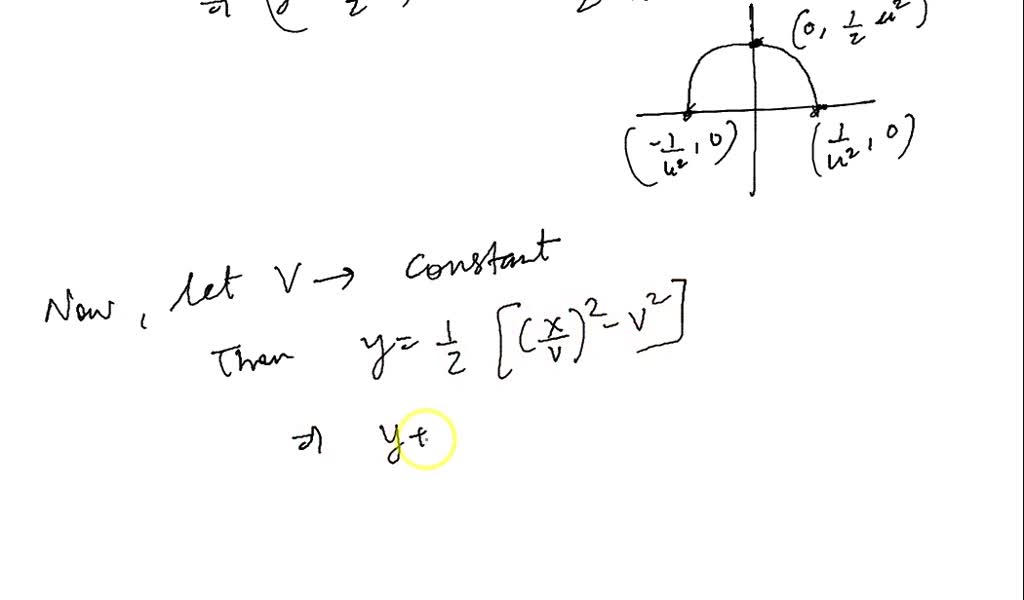 (0, 1/2 u²)
(-1/u², 0) (1/u², 0)
Now, let V → constant
Then y = 1/2 [(x/v)² - v²]
⇒ y +